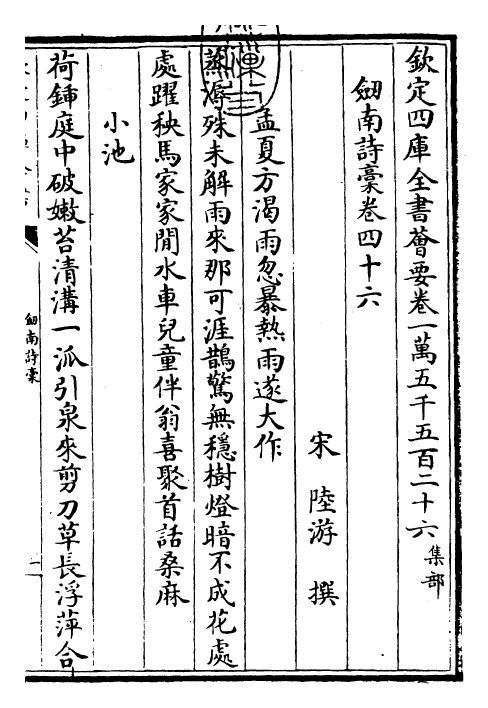 欽定四庫全書薈要卷一萬五千五百二十六集部
劔南詩稾卷四十六
宋陸游撰
孟夏方渴雨忽暴熱雨遂大作
蒸溽殊未解雨來那可涯鵲驚無穩樹燈暗不成花處
處躍秧馬家家閒水車兒童伴翁喜聚首話桑麻
小池
荷鍤庭中破嫩苔清溝一派引泉來剪刀草長浮萍合
劔南詩稾
一